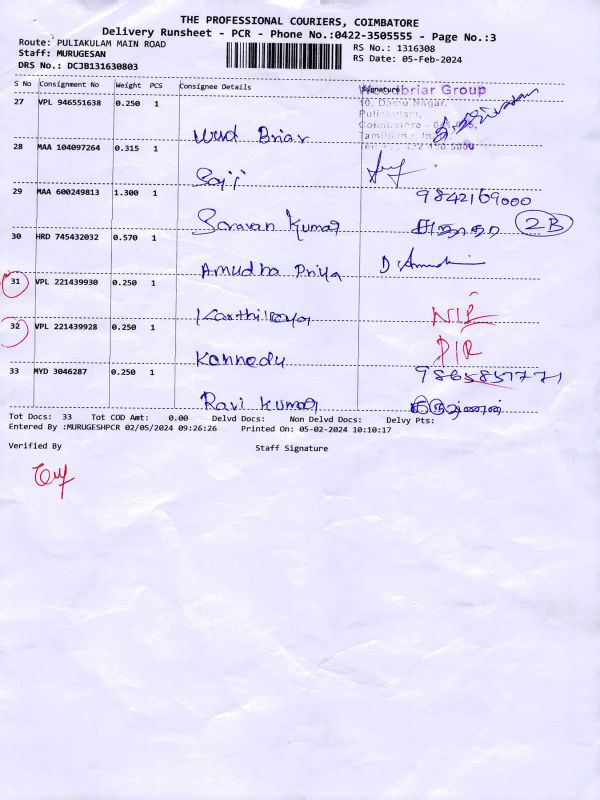 THE PROFESSIONAL COURIERS, COIMBATORE
Delivery Runsheet - PCR - Phone No.:0422-3505555 - Page No.:3
Route: PULIAKULAM MAIN ROAD
Staff: MURUGESAN
DRS No.: DCJB131630803
RS No.: 1316308
RS Date: 05-Feb-2024
S No Consignment No Weight PCS Consignee Details Signature
27 VPL 946551638 0.250 1
briar Group
10, Damu Nagar,
Puliakulam,
Coimbatore
Wind Briar
28 MAA 104097264 0.315 1
Saji
29 MAA 600249813 1.300 1 9842169000
Saravan Kumar 2B
30 HRD 745432032 0.570 1
Amudha Priya D. Amudh
31 VPL 221439930 0.250 1
Karthikeyan
32 VPL 221439928 0.250 1
Kannedy D/R
33 MYD 3046287 0.250 1 9865857771
Ravi Kumar
Tot Docs: 33 Tot COD Amt: 0.00 Delvd Docs: Non Delvd Docs: Delvy Pts:
Entered By :MURUGESHPCR 02/05/2024 09:26:26 Printed On: 05-02-2024 10:10:17
Verified By Staff Signature